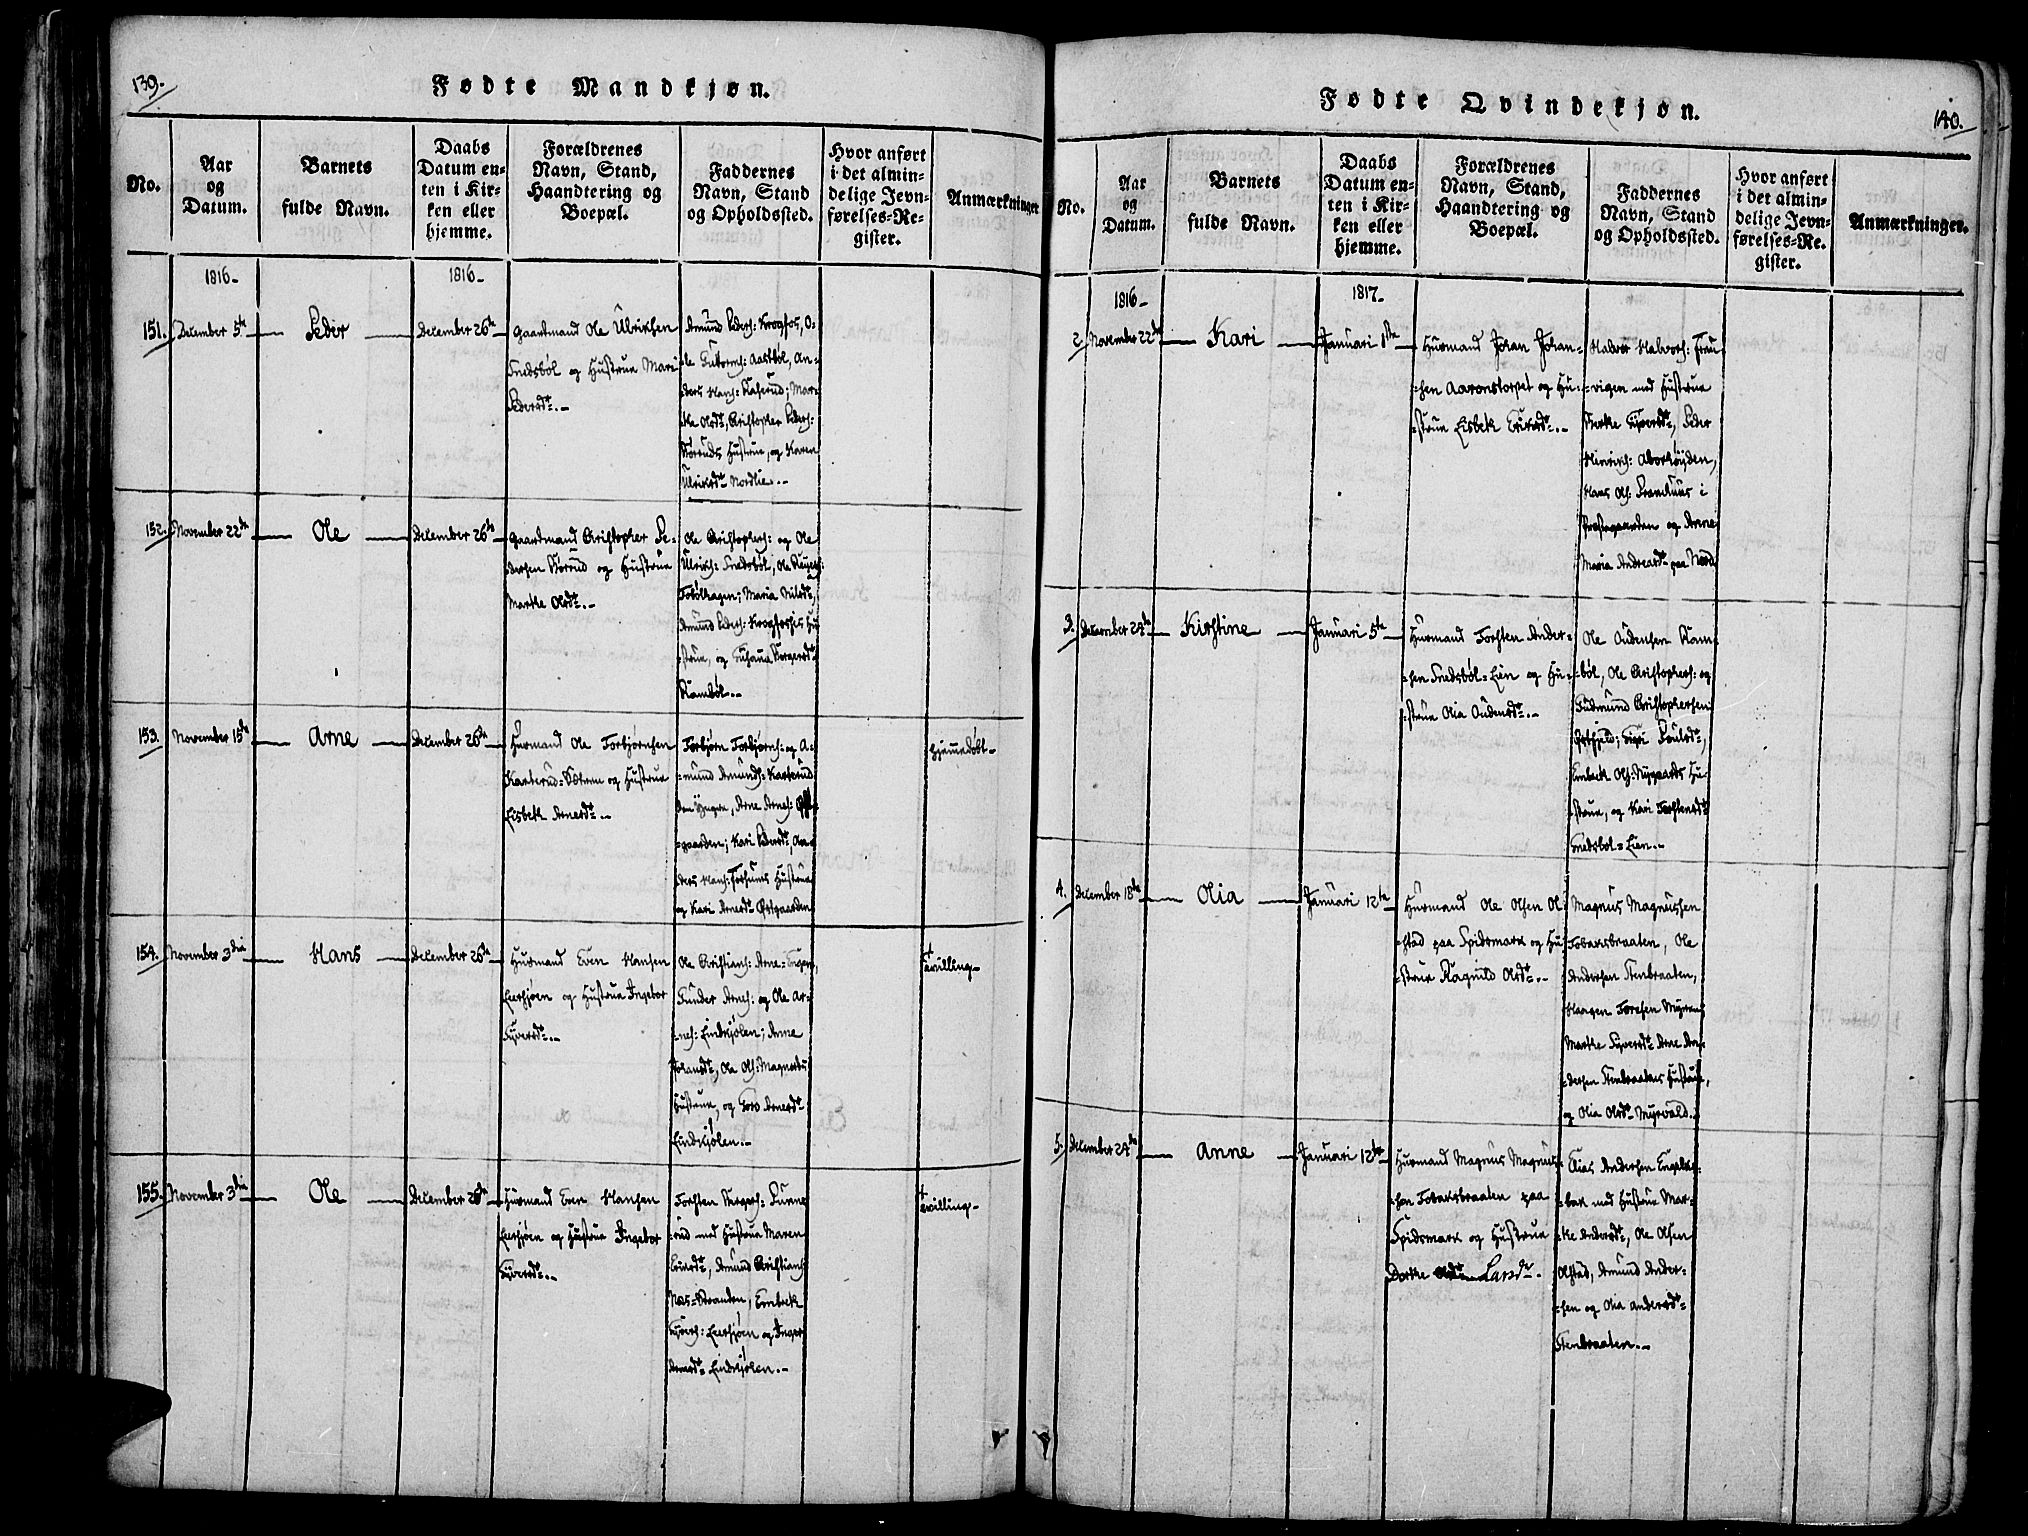 139.
Fødte Mandkjøn.
No.
Aar
og
Datum.
Barnets
fulde Navn.
Daabs
Datum en-
ten i Kir-
ken eller
hjemme.
Forældrenes
Navn, Stand,
Haandtering og
Boepæl.
Faddernes
Navn, Stand
og Opholdssted.
Hvor anført
i det almin-
delige Jevn-
førelses-Re-
gister.
Anmærkninger
1816-
1816-
151.
December 5te
Peder
December 26de
Gaardmand Ole Ulrichsen
Snedsbøl og Hustrue Mari
Pedersdr.-
Amund Peders: Krogfos, O-
le Guttorms: Aastbøl, An-
ders Hans: Kaserud; Mar-
the Olsdr, Christopher Peders:
Korüds Hustrue, og Karen
Ulrichsdr Nordlie.-
152.
November 22de
Ole
December 26de
Gaardmand Christopher Pe-
dersen Korrud og Hustrue
Marthe Olsdr.-
Ole Christophers: og Ole
Ulrichs: Snedsbøl, Ole
Tobølhagen; Maria Nilsdr,
Amund Peders: Krogfosses Hu
strue, og
153.
November 15de
Arne
December 26de
Huusmand Ole Torbjørnsen
Karterud-Sætren og Hustrue
Lisbeth Arnesdr.-
Torbjørn Torbjørns: og A-
mund Amunds: Karterud
den Yngere, Arne Arnes: Øst-
gaarden; Kari Pedersdr, An-
ders Hans: Torsums Hustrue
og Kari Arnesdr Østgaarden
Hjemmedøbt-
154.
November 3die
Hans
December 26de
Huusmand Even Hansen
Leersjøen og Hustrue Ingebor
Syversdr.-
Ole Christians: Arne-
Gunder Arnes: og Ole Ar-
nes: Lindkjølen; Anne
Johansdr, Ole Ols: Magnords
Hustrue, og Toro Arnesdr
Lindkjølen.-
+
Tvilling-
155.
November 3die
Ole
December 26de
Huusmand Even Hansen
Leersjøen og Hustrue Ingebor
Syversdr.-
Torsten
rud med Hustrue Maren
Ericsdr, Amund Christians:
Næs-Stranden, Embreck
Syvers: Leersjøen og Inger
Arnesdr Lindkjølen.-
+
Tvilling-
140.
Fødte Qvindekjøn.
No.
Aar
og
Datum.
Barnets
fulde Navn.
Daabs
Datum en-
ten i Kir-
ken eller
hjemme.
Forældrenes
Navn, Stand,
Haandtering og
Boepæl.
Faddernes
Navn, Stand
og Opholdssted.
Hvor anført
i det almin-
delige Jevn-
førelses-Re-
gister.
Anmærkninger.
1816-
1817-
2.
November 22de
Kari
Januari 1ste
Huusmand Johan Johan-
sen Aaronstorpet og Hu-
strue Lisbeth Ericsdr.-
Halvor Halvors:
vigen med Hustrue
Syversdr, Peder
Hinrichs: Aborhøyden,
Hans Ols: i
Præstegaarden og Anne
Maria Andreasdr paa Nord
3.
December 24de
Kirstine
Januari 5te
Huusmand Torsten Ander-
sen Snedsbøl-Eien og Hu-
strue Olia Audensdr.-
Ole Audensen Ram-
bøl, Ole Christophers: og
Gudmund Christophersen
Poulsdr,
Embreck Ols: Nygaards Hu-
strue, og Kari Torstensdr
Snedsbøl-Eien.-
4.
December 18de
Olia
Januari 12te
Huusmand Ole Olsen Ol-
stad paa Spidsmark og Hu
strue Ragnild Olsdr.-
Magnus Magnussen
Tobaksbraaten, Ole
Andersen Stenbraaten,
Haagen Toresen Myren;
Marthe Syversdr Arne An-
dersen Stenbraatens Hustrue,
og Olia Olsdr Myrvold.
5.
December 24de
Anne
Januari 12te
Huusmand Magnus Magnus-
sen Tobaksbraaten paa
Spidsmark og Hustrue
Dorthe Larsdr.
Elias Andersen Engelsk-
bæk med Hustrue Mar-
the Andersdr, Ole Olsen
Olstad, Amund Ander-
sen og Olia Andersdr
Stenbraaten.-